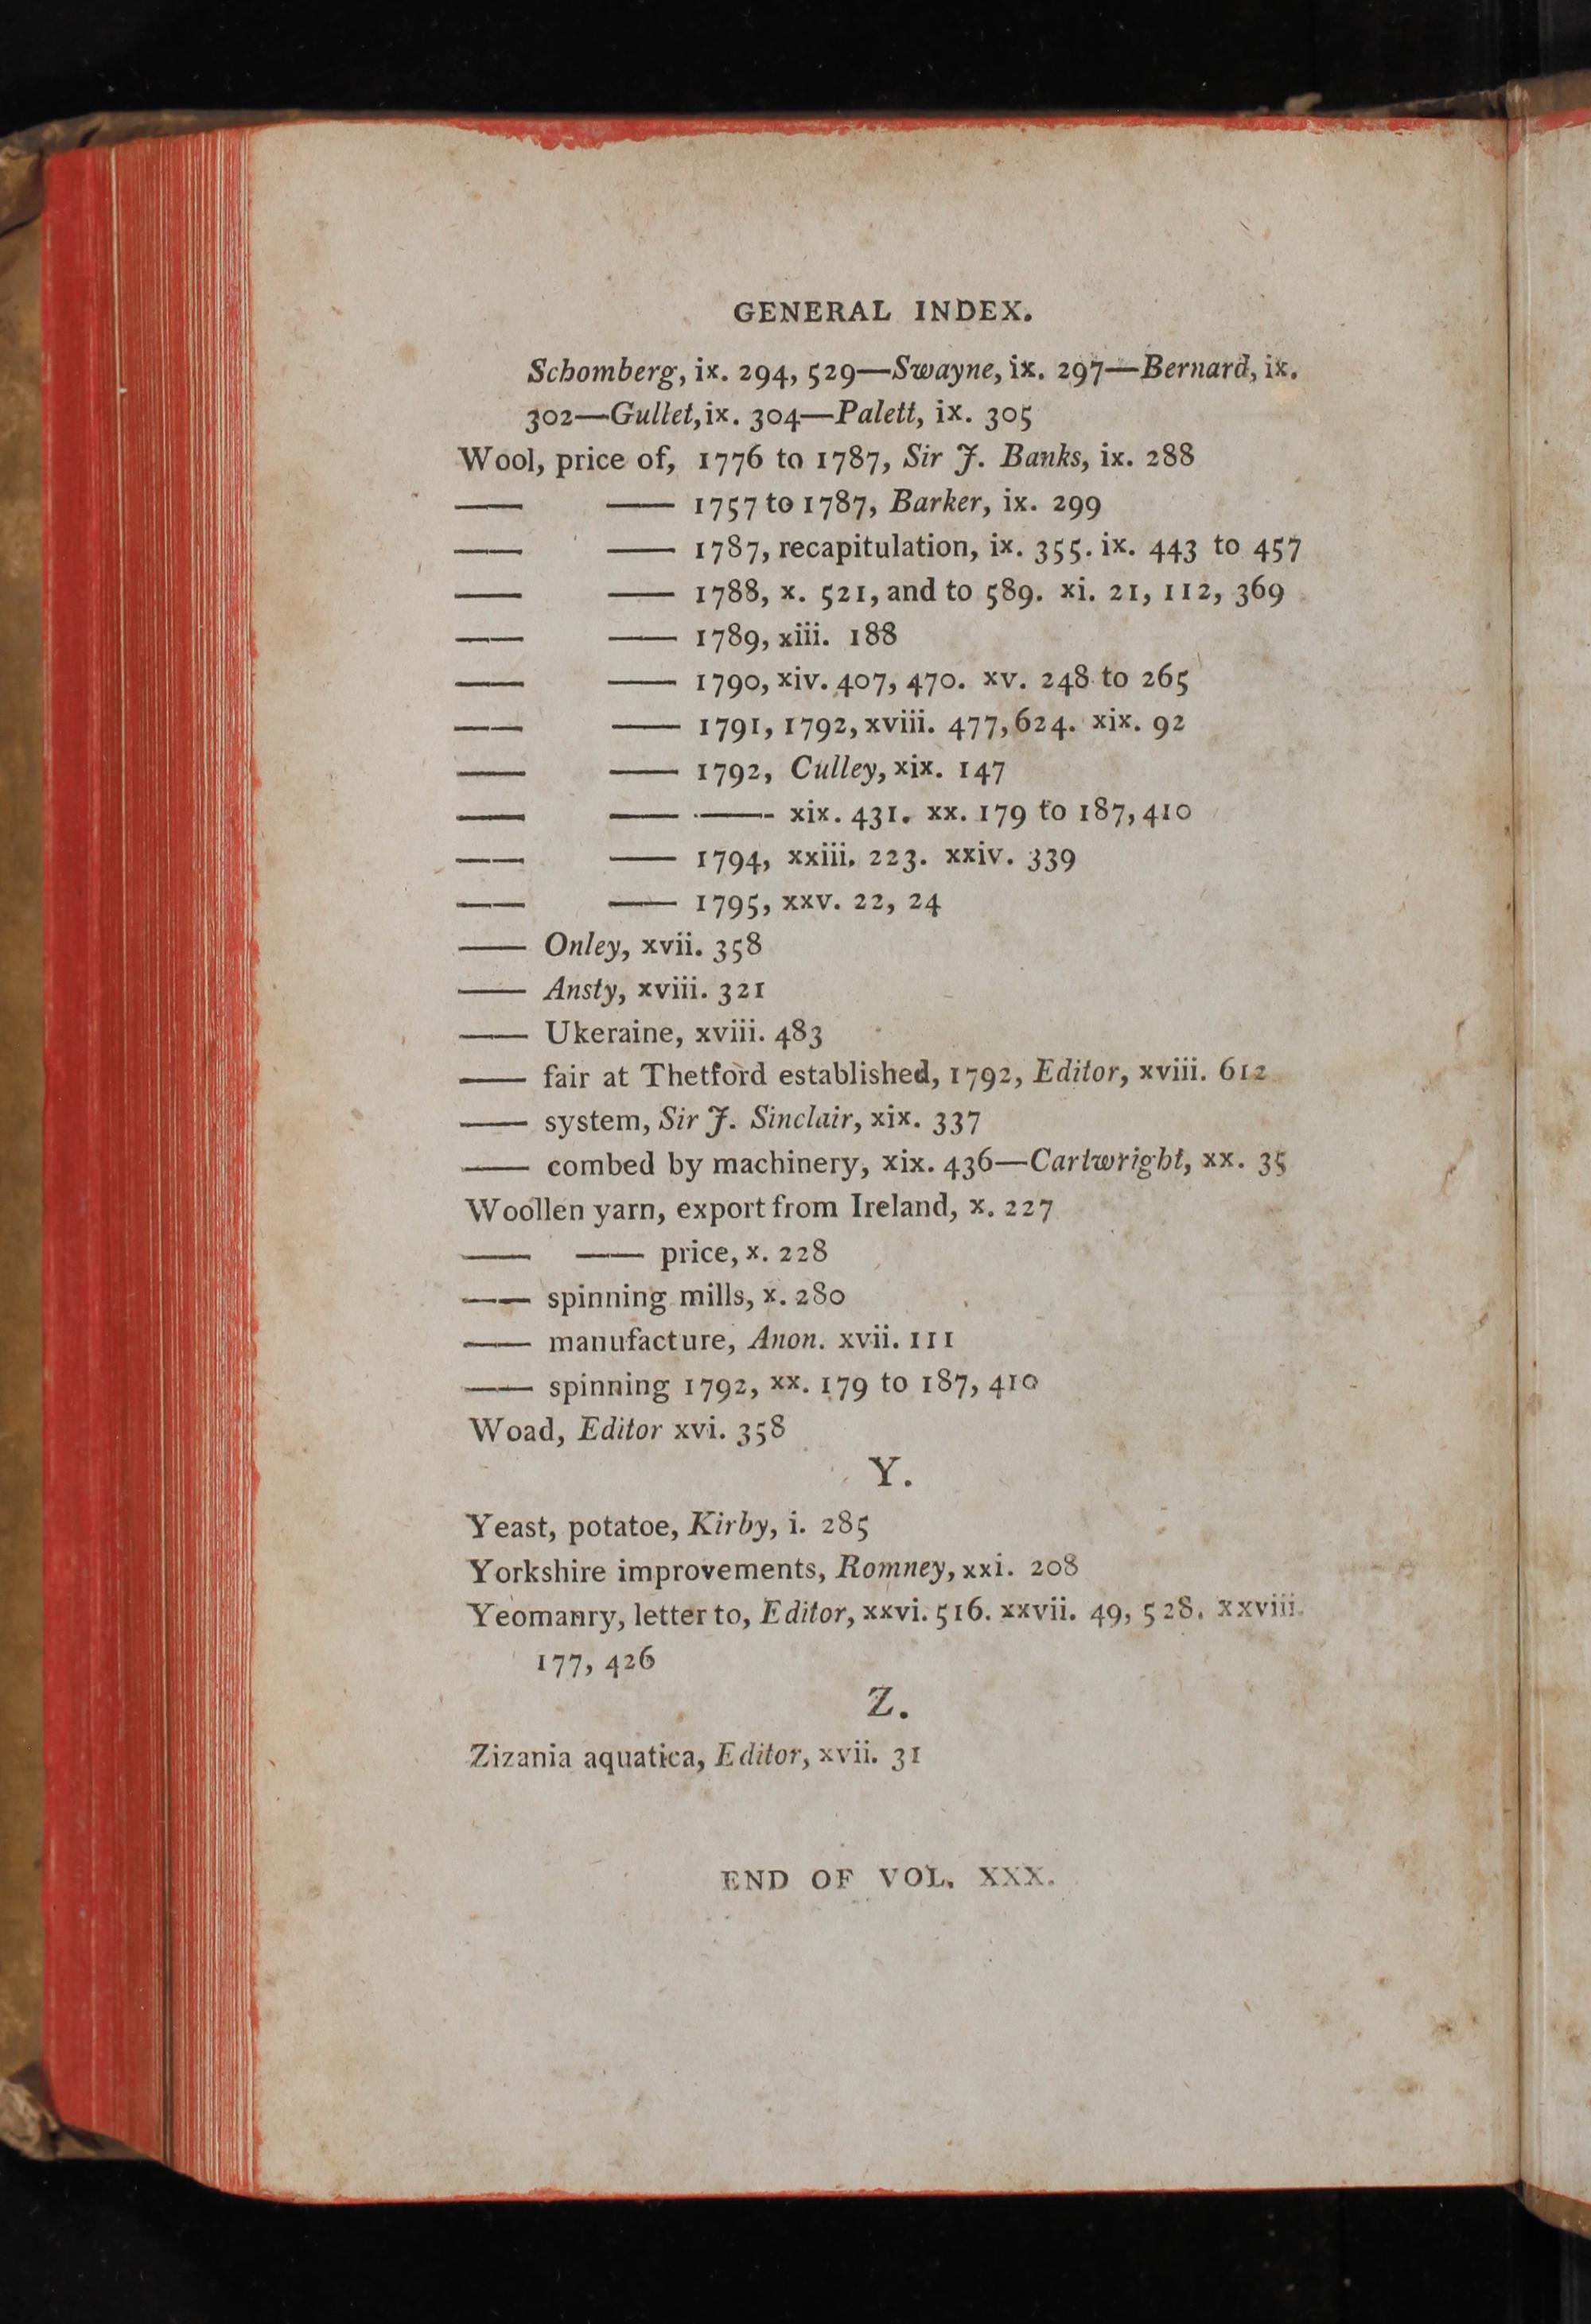 GENERAL INDEX.
Schomberg, ix. 294, 529—Swayne, ix. 297—Bernard, ix.
302—Gullet, ix. 304—Palett, ix. 305
Wool, price of, 1776 to 1787, Sir J. Banks, ix. 288
—— —— 1757 to 1787, Barker, ix. 299
—— —— 1787, recapitulation, ix. 355. ix. 443 to 457
—— —— 1788, x. 521, and to 589. xi. 21, 112, 369
—— —— 1789, xiii. 188
—— —— 1790, xiv. 407, 470. xv. 248 to 265
—— —— 1791, 1792, xviii. 477, 624. xix. 92
—— —— 1792, Culley, xix. 147
—— —— —— xix. 431. xx. 179 to 187, 410
—— —— 1794, xxiii. 223. xxiv. 339
—— —— 1795, xxv. 22, 24
—— Onley, xvii. 358
—— Ansty, xviii. 321
—— Ukeraine, xviii. 483
—— fair at Thetford established, 1792, Editor, xviii. 612
—— system, Sir J. Sinclair, xix. 337
—— combed by machinery, xix. 436—Cartwright, xx. 35
Woollen yarn, export from Ireland, x. 227
—— —— price, x. 228
—— spinning mills, x. 280
—— manufacture, Anon. xvii. 111
—— spinning 1792, xx. 179 to 187, 410
Woad, Editor xvi. 358
Y.
Yeast, potatoe, Kirby, i. 285
Yorkshire improvements, Romney, xxi. 208
Yeomanry, letter to, Editor, xxvi. 516. xxvii. 49, 528. xxviii.
177, 426
Z.
Zizania aquatica, Editor, xvii. 31
END OF VOL. XXX.